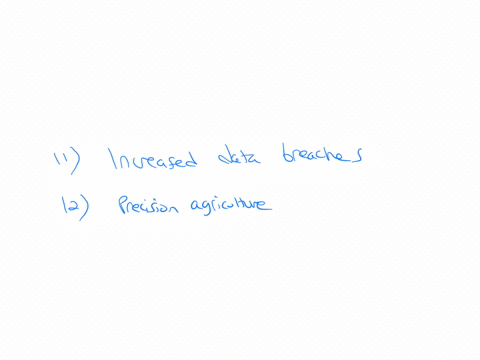 11) Increased data breaches
12) Precision agriculture